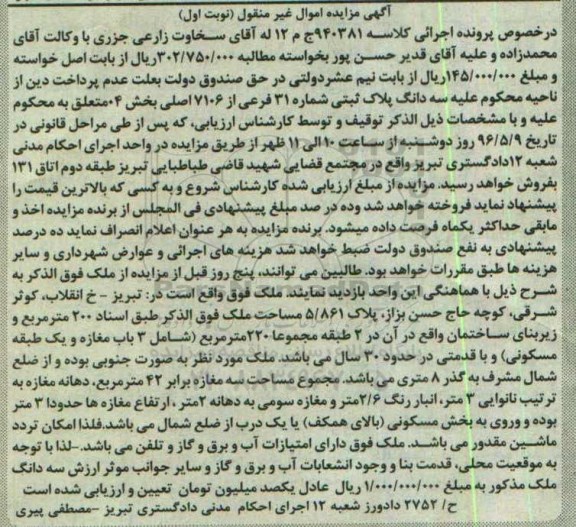 آگهی مزایده اموال غیر منقول (نوبت اول)
درخصوص پرونده اجرائی کلاسه ۹۴۰۳۸۱ج م ۱۲ له آقای سخاوت زارعی جزری با وکالت آقای
محمدزاده و علیه آقای قدیر حسن پور بخواسته مطالبه ۳۰۲/۷۵۰/۰۰۰ریال از بابت اصل خواسته
و مبلغ ۱۴۵/۰۰۰/۰۰۰ریال از بابت نیم عشردولتی در حق صندوق دولت بعلت عدم پرداخت دین از
ناحیه محکوم علیه سه دانگ پلاک ثبتی شماره ۳۱ فرعی از ۷۱۰۶ اصلی بخش ۰۴متعلق به محکوم
علیه و با مشخصات ذیل الذکر توقیف و توسط کارشناس ارزیابی، که پس از طی مراحل قانونی در
تاریخ ۹۶/۵/۹ روز دوشنبه از ساعت ۱۰ الی ۱۱ ظهر از طریق مزایده در واحد اجرای احکام مدنی
شعبه ۱۲دادگستری تبریز واقع در مجتمع قضایی شهید قاضی طباطبایی تبریز طبقه دوم اتاق ۱۳۱
بفروش خواهد رسید. مزایده از مبلغ ارزیابی شده کارشناس شروع و به کسی که بالاترین قیمت را
پیشنهاد نماید فروخته خواهد شد وده در صد مبلغ پیشنهادی فی المجلس از برنده مزایده اخذ و
مابقی حداکثر یکماه فرصت داده میشود. برنده مزایده به هر عنوان اعلام انصراف نماید ده درصد
پیشنهادی به نفع صندوق دولت ضبط خواهد شد هزینه های اجرائی و عوارض شهرداری و سایر
هزینه ها طبق مقررات خواهد بود. طالبین می توانند، پنج روز قبل از مزایده از ملک فوق الذکر به
شرح ذیل با هماهنگی این واحد بازدید نمایند. ملک فوق واقع است در: تبریز - خ انقلاب، کوثر
شرقی، کوچه حاج حسن بزاز، پلاک ۵/۸۶۱ مساحت ملک فوق الذکر طبق اسناد ۲۰۰ مترمربع و
زیربنای ساختمان واقع در آن در ۲ طبقه مجموعا ۲۲۰مترمربع (شامل ۳ باب مغازه و یک طبقه
مسکونی) و با قدمتی در حدود ۳۰ سال می باشد. ملک مورد نظر به صورت جنوبی بوده و از ضلع
شمال مشرف به گذر ۸ متری می باشد. مجموع مساحت سه مغازه برابر ۴۲ مترمربع، دهانه مغازه به
ترتیب نانوایی ۳ متر، انبار رنگ ۲/۶متر و مغازه سومی به دهانه ۲متر ، ارتفاع مغازه ها حدودا ۳ متر
بوده و وروی به بخش مسکونی (بالای همکف) با یک درب از ضلع شمال می باشد.فلذا امکان تردد
ماشین مقدور می باشد. ملک فوق دارای امتیازات آب و برق و گاز و تلفن می باشد.-لذا با توجه
به موقعیت محلی، قدمت بنا و وجود انشعابات آب و برق و گاز و سایر جوانب موثر ارزش سه دانگ
ملک مذکور به مبلغ ۱/۰۰۰/۰۰۰/۰۰۰ ریال عادل یکصد میلیون تومان تعیین و ارزیابی شده است
ح/ ۲۷۵۲ دادورز شعبه ۱۲اجرای احکام مدنی دادگستری تبریز -مصطفی پیری